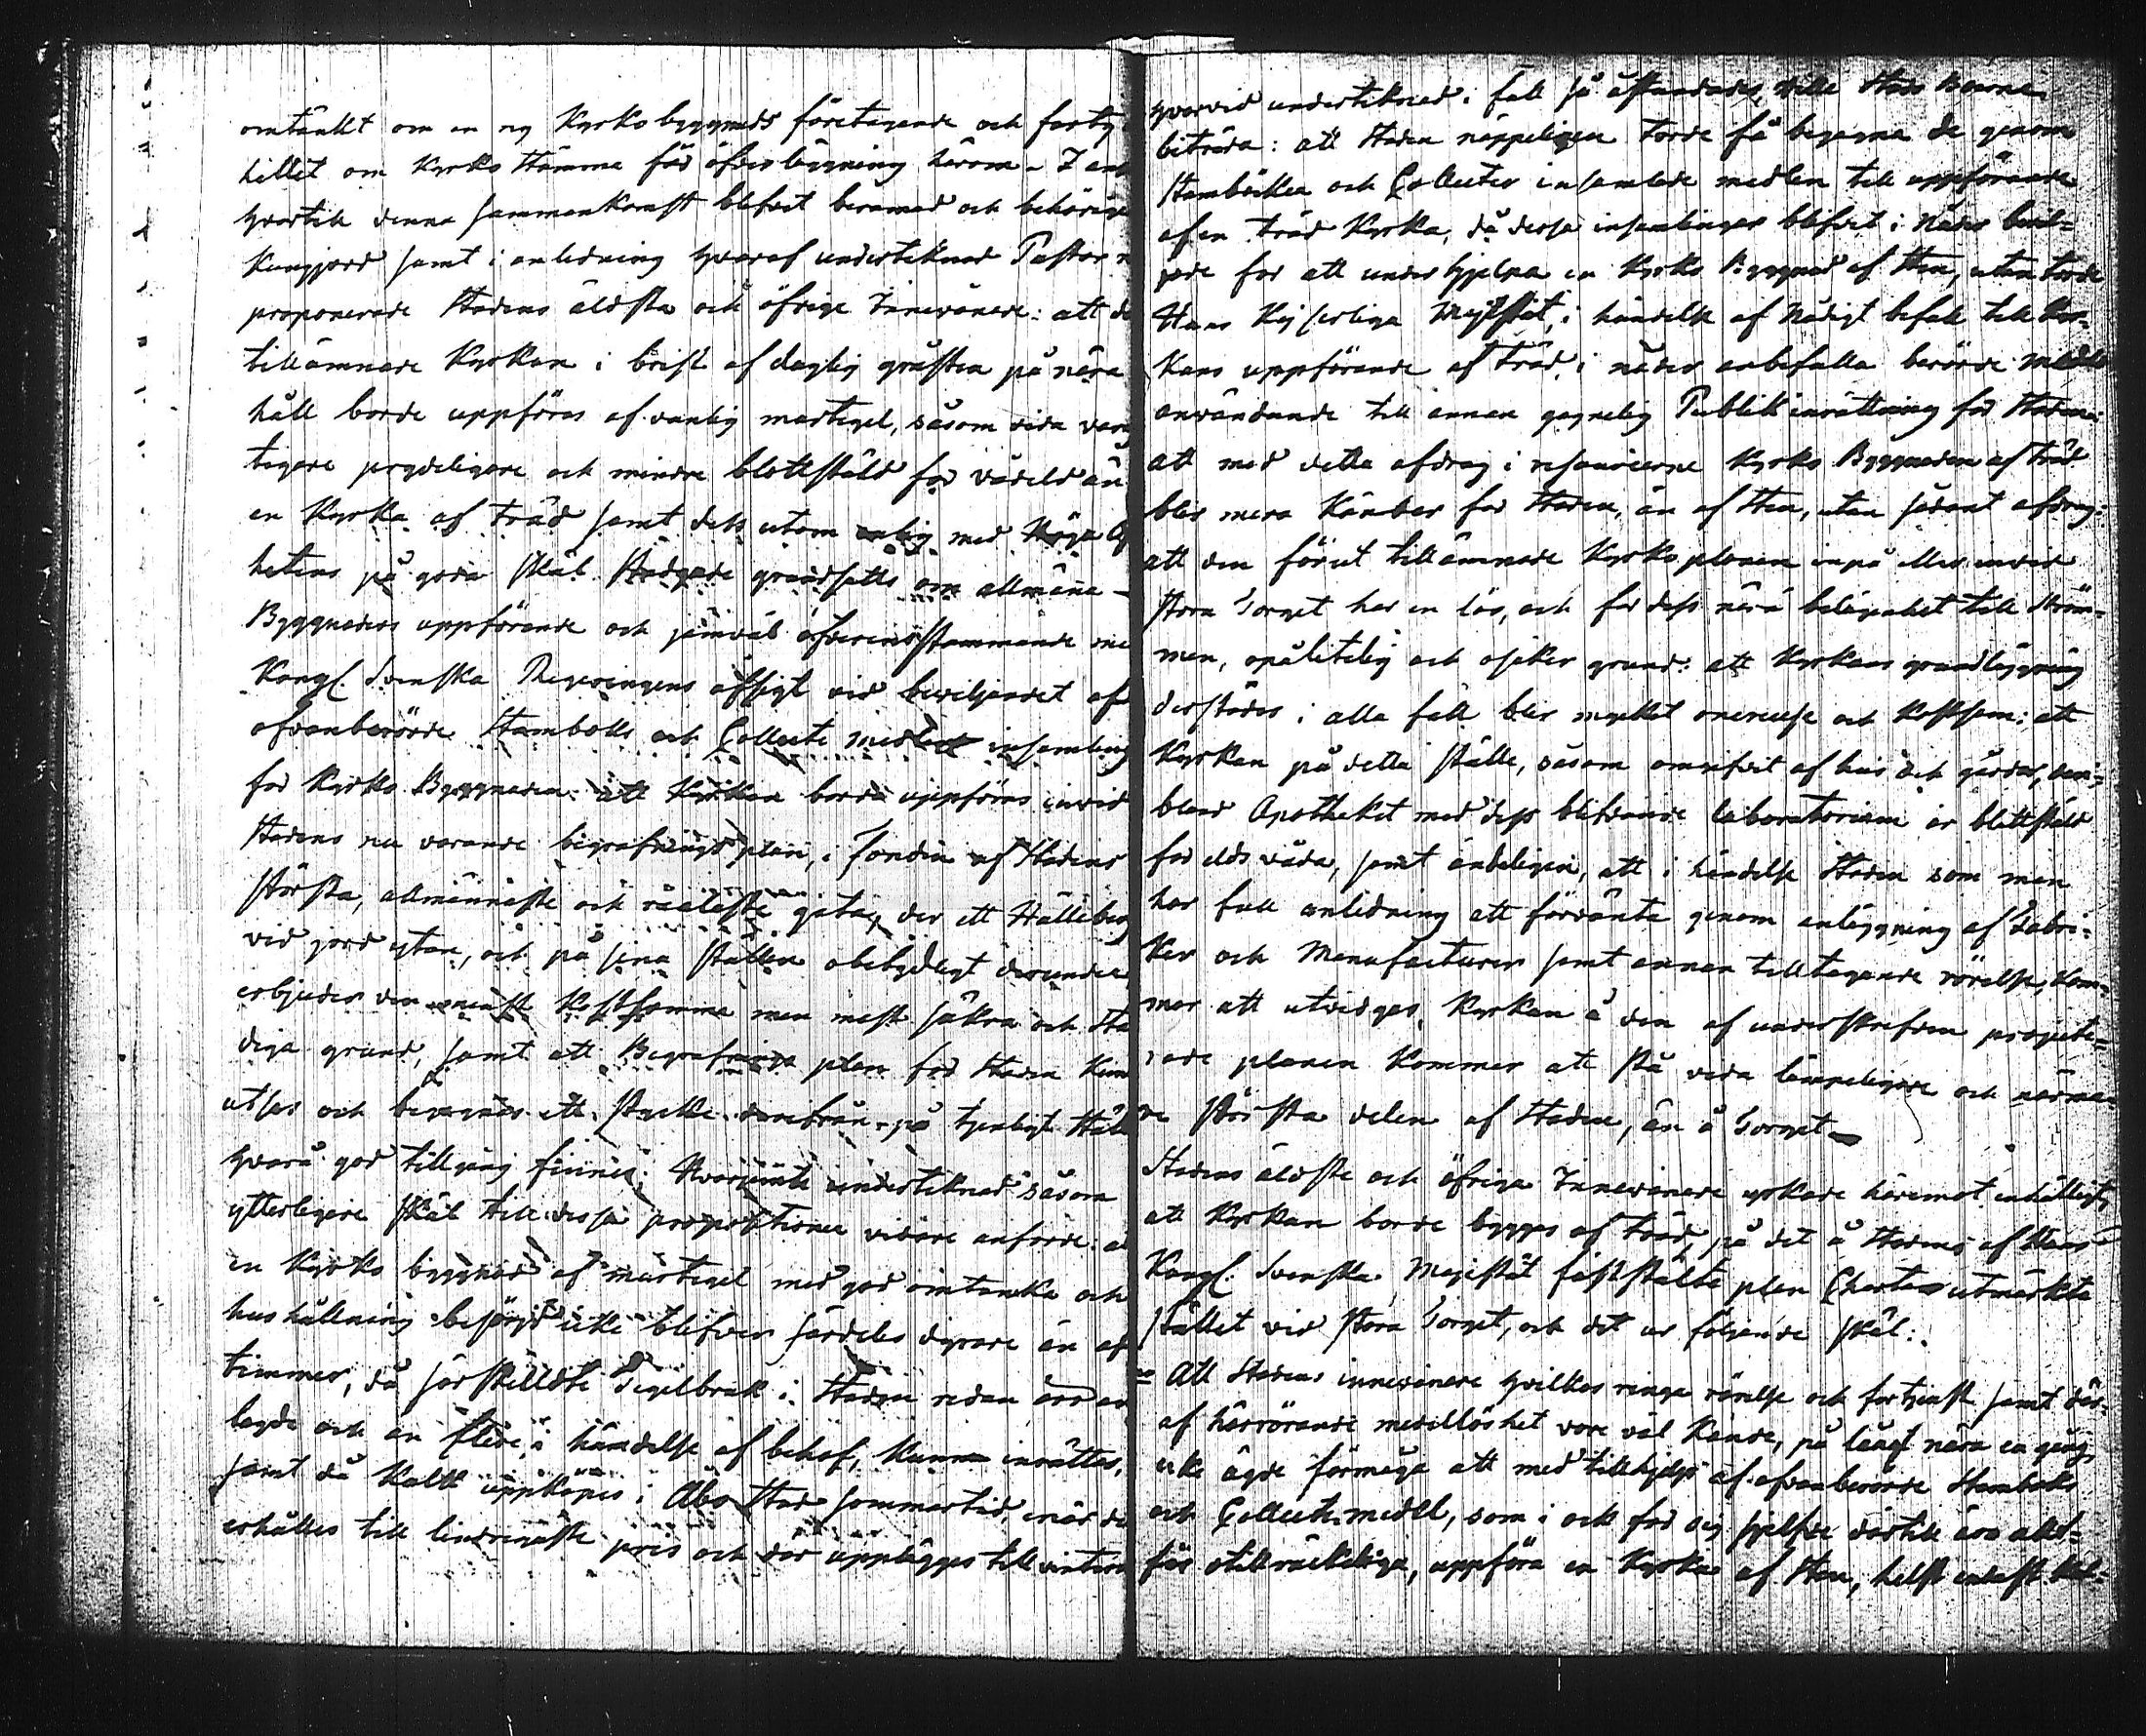 omtänkt om en ny Kyrko byggnads företagande och
om Kyrko Stämma för öfverläggning härom -
hvartil denna sammankomst blifvit beramad och behörigen
Kungjord samt i anledning hvaraf undertecknad Pastor
proponerade Stadens äldsta och öfrige Innevånare: att
tillämnade Kyrkan i brist af duglig gråsten på nära
håll borde uppföras af vanlig murtegel, såsom vida
prydeligare och mindre blottstäld för vådeld än
en Kyrka af träd samt dess utom enlig med Höga
hetens på goda skäl Stadgade grundsatts om allmäna
Byggnaders uppförande och jämväl öfverensstämmande
Kongl Svenska Regeringens afsigt vid beviljandet af
ofvanberörde Stamboks och Collecte medels insamling
för Kyrko Byggnaden: att Kyrkan borde uppföras invid
Stadens nu varande begrafnings plan, i fonden af Stadens
största, allmännaste och gata, der ett Hälleberg
vid jord ytan, och på sina ställen obetydligt derunder
erbjuder den minst Kostsamma men mest säkra och
diga grund, samt att Begrafnings plan för Staden
utses och begagnas ett stycke derifrån på tjenligt
hvarå god tillgång finnes. Hvarjemte undertecknad såsom
ytterligare skäl till dessa propositioner vidare anförde:
en Kyrko byggnad af murtegel med god omtanka och
hushållning besörgd icke blifver särdeles dyrare än af
timmer, då särskilldte Tegelbruk i Staden redan äro
lagda och än flere, i händelse af behof, Kunna inrättas,
samt då Kalk uppköpes i Åbo Stad sommartid, när
erhålles till lindrigaste pris och där upplägges till vintern
hvarvid undertecknad, i fall så åstundades, ville
biträda: att Staden näppeligen torde få begagna de genom
Stamböcker och Collecter insamlade medlen till uppförande
af en träd Kyrka, då dessa insamlingar blifvit i Nåder
jade för att underhjelpa en Kyrko Byggnad af Sten, utan torde
Hans Kejserliga Majestät, i händelse af Nådigt bifall till Kyr-
kans uppförande af träd, i nåder anbefalla berörde
användande till annan gagnelig Publik inrättning för Staden:
att med detta afdrag i resourcerne Kyrko Byggnaden af träd
blir mera Känbar för Staden, än af Sten, utan sådant afdrag:
att den förut tillämnade Kyrko planen inpå eller invid
stora Torget har en lös, och för dess nära belägenhet till Ström-
men, opålitelig och osäker grund: att Kyrkans grundläggning
derstädes i alla fall blir mycket onereuse och Kostsam: att
Kyrkan på detta ställe, såsom omgifvit af hus och gårdar,
bland Apotheket med dess blifvande laboratorium är blottstäld
för eldsvåda, samt ändeligen, att i händelse Staden som man
har full anledning att förvänta genom anläggning af Fabri-
ker och Manufacturer samt annan tilltagande rörelse, Kom-
mer att utvidgas, Kyrkan å den af underskrifven projecte-
rade planen Kommer att stå vida lämpeligare och närma-
re största delen af Staden, än å Torget
Stadens äldste och öfriga Innevånare yrkade häremot enhälligt,
att Kyrkan borde byggas af träd, på det å Stadens af Hans
Kongl. Svenska Majestät fastställte plan Charta utmärkta
stället vid stora Torget, och det ur följande skäl:
Att Stadens innevånare hvilkas ringa rörelse och förtjenst samt där-
af härrörande medellöshet vore väl Kände, på långt nära en gång
icke ägde förmåga att med tillhjelp af ofvanberörde Stamboks
och Collecte medel, som i och för sig sjelfve därtill äro
för otillräckeliga, uppföra en Kyrka af Sten, helst endast